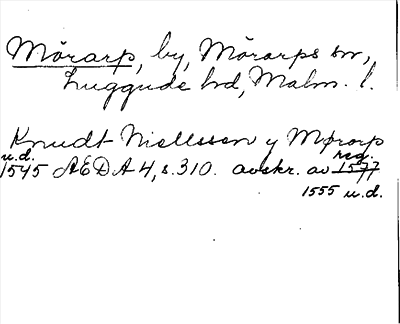 Mörarp, by, Mörarps sn,
Luggude hd, Malm. l.
Knudt Niellssen y Mørarp
u.d. reg.
1545 AEDA 4, s. 310. avskr. av 1577
1555 u.d.